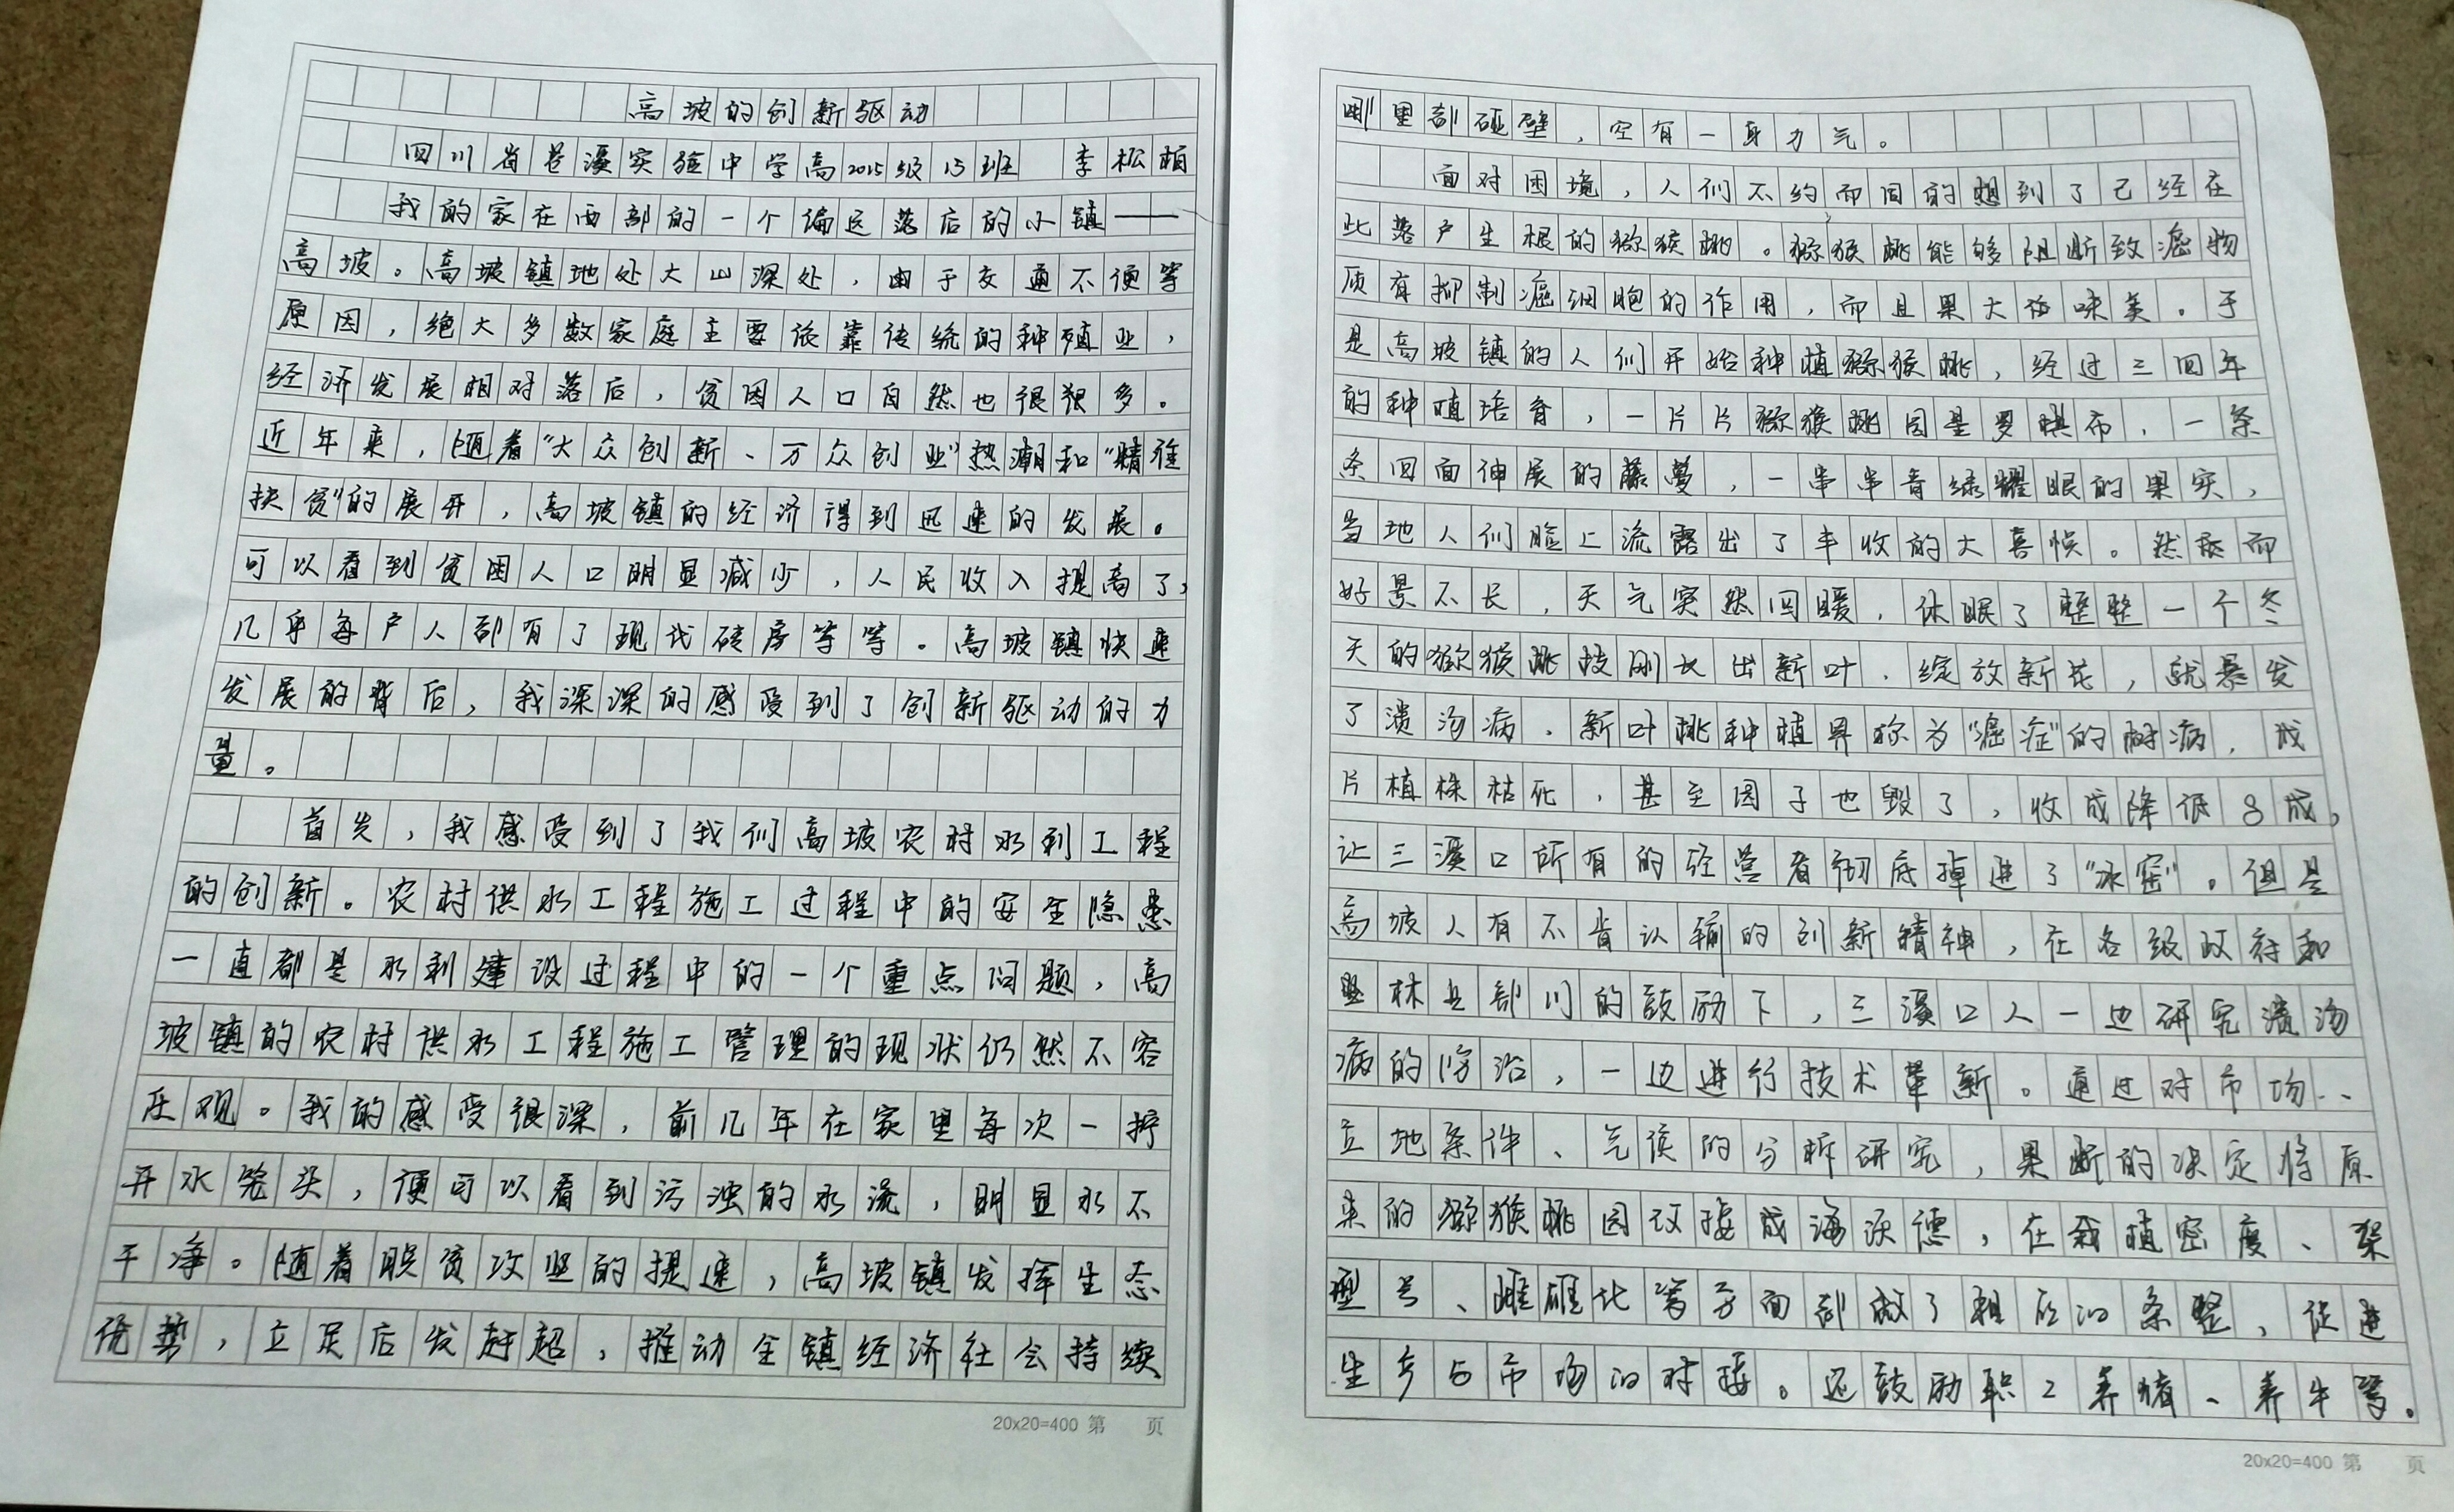 高坡的创新驱动
四川省苍溪实验中学高2015级15班 李松柏
我的家在西部的一个偏远落后的小镇——
高坡。高坡镇地处大山深处，由于交通不便等
原因，绝大多数家庭主要依靠传统的种殖业，
经济发展相对落后，贫困人口自然也很狠多。
近年来，随着“大众创新、万众创业”热潮和“精准
扶贫”的展开，高坡镇的经济得到迅速的发展。
可以看到贫困人口明显减少，人民收入提高了，
几乎每户人都有了现代砖房等等。高坡镇快速
发展的背后，我深深的感受到了创新驱动的力
量。
首先，我感受到了我们高坡农村水利工程
的创新。农村供水工程施工过程中的安全隐患
一直都是水利建设过程中的一个重点问题，高
坡镇的农村供水工程施工管理的现状仍然不容
庄观。我的感受很深，前几年在家里每次一拧
开水笼头，便可以看到污浊的水流，明显水不
干净。随着脱贫攻坚的提速，高坡镇发挥生态
优势，立足后发赶超，推动全镇经济社会持续
哪里都碰壁，空有一身力气。
面对困境，人们不约而同的想到了已经在
此落户生根的猕猴桃。猕猴桃能够阻断致癌物
质有抑制癌细胞的作用，而且果大味美。于
是高坡镇的人们开始种植猕猴桃，经过三四年
的种植培育，一片片猕猴桃园星罗棋布，一条
条四面伸展的藤蔓，一串串青绿耀眼的果实，
当地人们脸上流露出了丰收的大喜悦。然而
好景不长，天气突然回暖，休眠了整整一个冬
天的猕猴桃枝刚长出新叶、绽放新花，就暴发
了溃疡病。新叶桃种植界称为“癌症”的树病，成
片植株枯死，甚至园子也毁了，收成降低8成，
让三溪口所有的经营者彻底掉进了“冰窖”。但是
高坡人有不肯认输的创新精神，在各级政府和
林业部门的鼓励下，三溪口人一边研究溃疡
病的防治，一边进行技术革新。通过对市场、
立地条件、气候的分析研究，果断的决定将原
来的猕猴桃园改接成海沃德，在栽植密度、架
型号、雌雄比等方面都做了相应的条整，促进
生产与市场的对接。还鼓励职工养猪、养牛等。